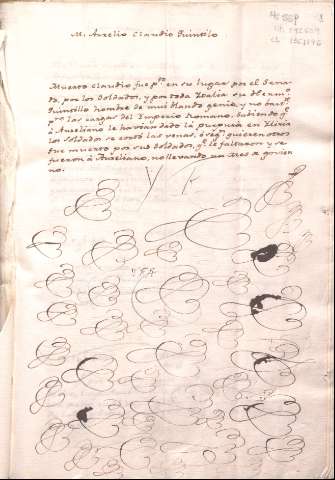 M. Aurelio Claudio Quintilo
Muerto Claudio fue pto en su lugar por el Sena-
do, por los Soldados, y por toda Ytalia su Hermno
Quintillo hombre de mui blando genio, y no bastte
pa las cargas del Imperio Romano. Sabiendo qe
à Aureliano le havian dado la purpura en Iliria
los Soldados se cortó las venas, ò segn quieren otros
fue muerto por sus Soldados, qe le faltaron y se
fueron à Aureliano, no llevando un mes de govier-
no.